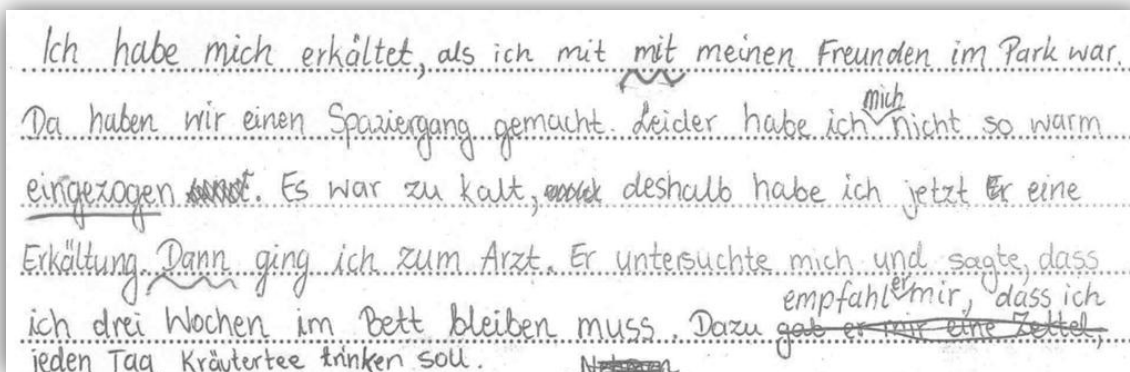 Ich habe mich erkältet, als ich mit mit meinen Freunden im Park war.
Da haben wir einen Spaziergang gemacht. Leider habe ich mich nicht so warm
eingezogen. Es war zu kalt, deshalb habe ich jetzt Er eine
Erkältung. Dann ging ich zum Arzt. Er untersuchte mich und sagte, dass
ich drei Wochen im Bett bleiben muss. Dazu gab er mir eine Zettel, empfahl er mir, dass ich
jeden Tag Kräutertee trinken soll.